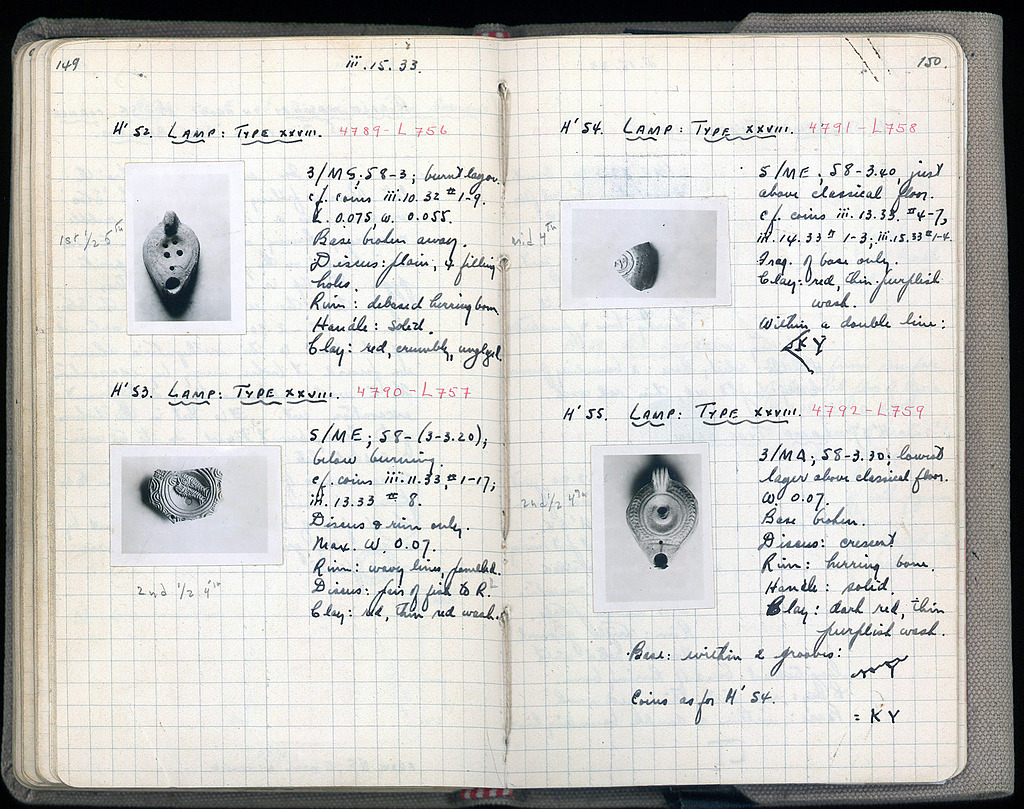 149
iii.15.33.
H' 52. LAMP: TYPE XXVIII. 4789-L756
1st 1/2 5th
3/MS; 58-3; burnt layer.
cf. coins iii.10.32 #1-9.
L. 0.075, W. 0.055.
Base broken away.
Discus: plain, 4 filling
holes.
Rim: debased herring bone
Handle: solid.
Clay: red, crumbly, unglazed.
H' 53. LAMP: TYPE XXVIII. 4790-L757
2nd 1/2 4th
5/ME; 58-(3-3.20);
below burning.
cf. coins iii.11.33, #1-17;
iii.13.33 #8.
Discus & rim only.
Max. W. 0.07.
Rim: wavy lines, panelled.
Discus: pair of fish to R.
Clay: red, thin red wash.
150.
H' 54. LAMP: TYPE XXVIII. 4791-L758
mid 4th
5/ME; 58-3.40, just
above classical floor.
cf. coins iii.13.33. #4-7,
iii.14.33 #1-3; iii.15.33 #1-4.
Frag. of base only.
Clay: red, thin purplish
wash.
Within a double line:
KY
H' 55. LAMP: TYPE XXVIII. 4792-L759
2nd 1/2 4th
3/MA; 58-3.30; lowest
layer above classical floor.
W. 0.07.
Base broken.
Discus: cresent
Rim: herring bone.
Handle: solid.
Clay: dark red, thin
purplish wash.
Base: within 2 grooves:
Coins as for H' 54.
= KY